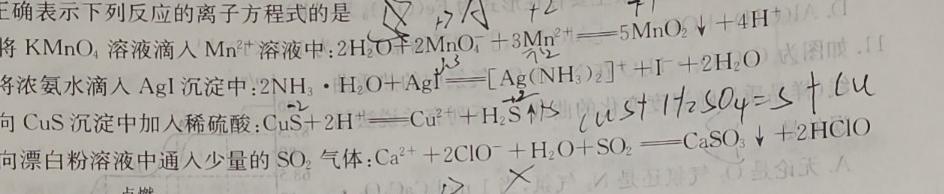 正确表示下列反应的离子方程式的是
将 KMnO₄ 溶液滴入 Mn²⁺ 溶液中:2H₂O+2MnO₄⁻+3Mn²⁺══5MnO₂↓+4H⁺
将浓氨水滴入 AgI 沉淀中:2NH₃·H₂O+AgI══[Ag(NH₃)₂]⁺+I⁻+2H₂O
向 CuS 沉淀中加入稀硫酸:CuS+2H⁺══Cu²⁺+H₂S↑ CuS+H₂SO₄=S+Cu
向漂白粉溶液中通入少量的 SO₂ 气体:Ca²⁺+2ClO⁻+H₂O+SO₂══CaSO₃↓+2HClO
点燃